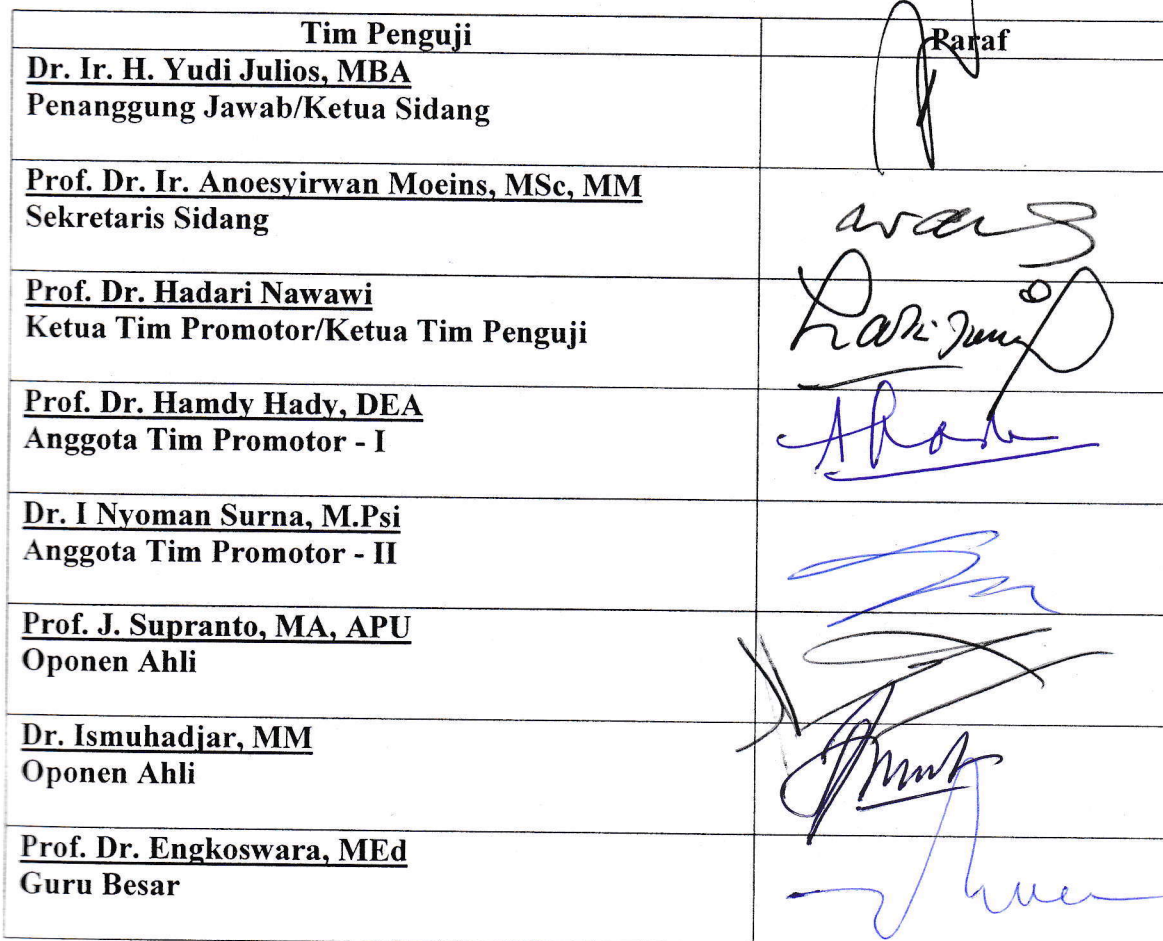 Tim Penguji
Paraf
Dr. Ir. H. Yudi Julios, MBA
Penanggung Jawab/Ketua Sidang
Prof. Dr. Ir. Anoesyirwan Moeins, MSc, MM
Sekretaris Sidang
Prof. Dr. Hadari Nawawi
Ketua Tim Promotor/Ketua Tim Penguji
Prof. Dr. Hamdy Hady, DEA
Anggota Tim Promotor - I
Dr. I Nyoman Surna, M.Psi
Anggota Tim Promotor - II
Prof. J. Supranto, MA, APU
Oponen Ahli
Dr. Ismuhadjar, MM
Oponen Ahli
Prof. Dr. Engkoswara, MEd
Guru Besar